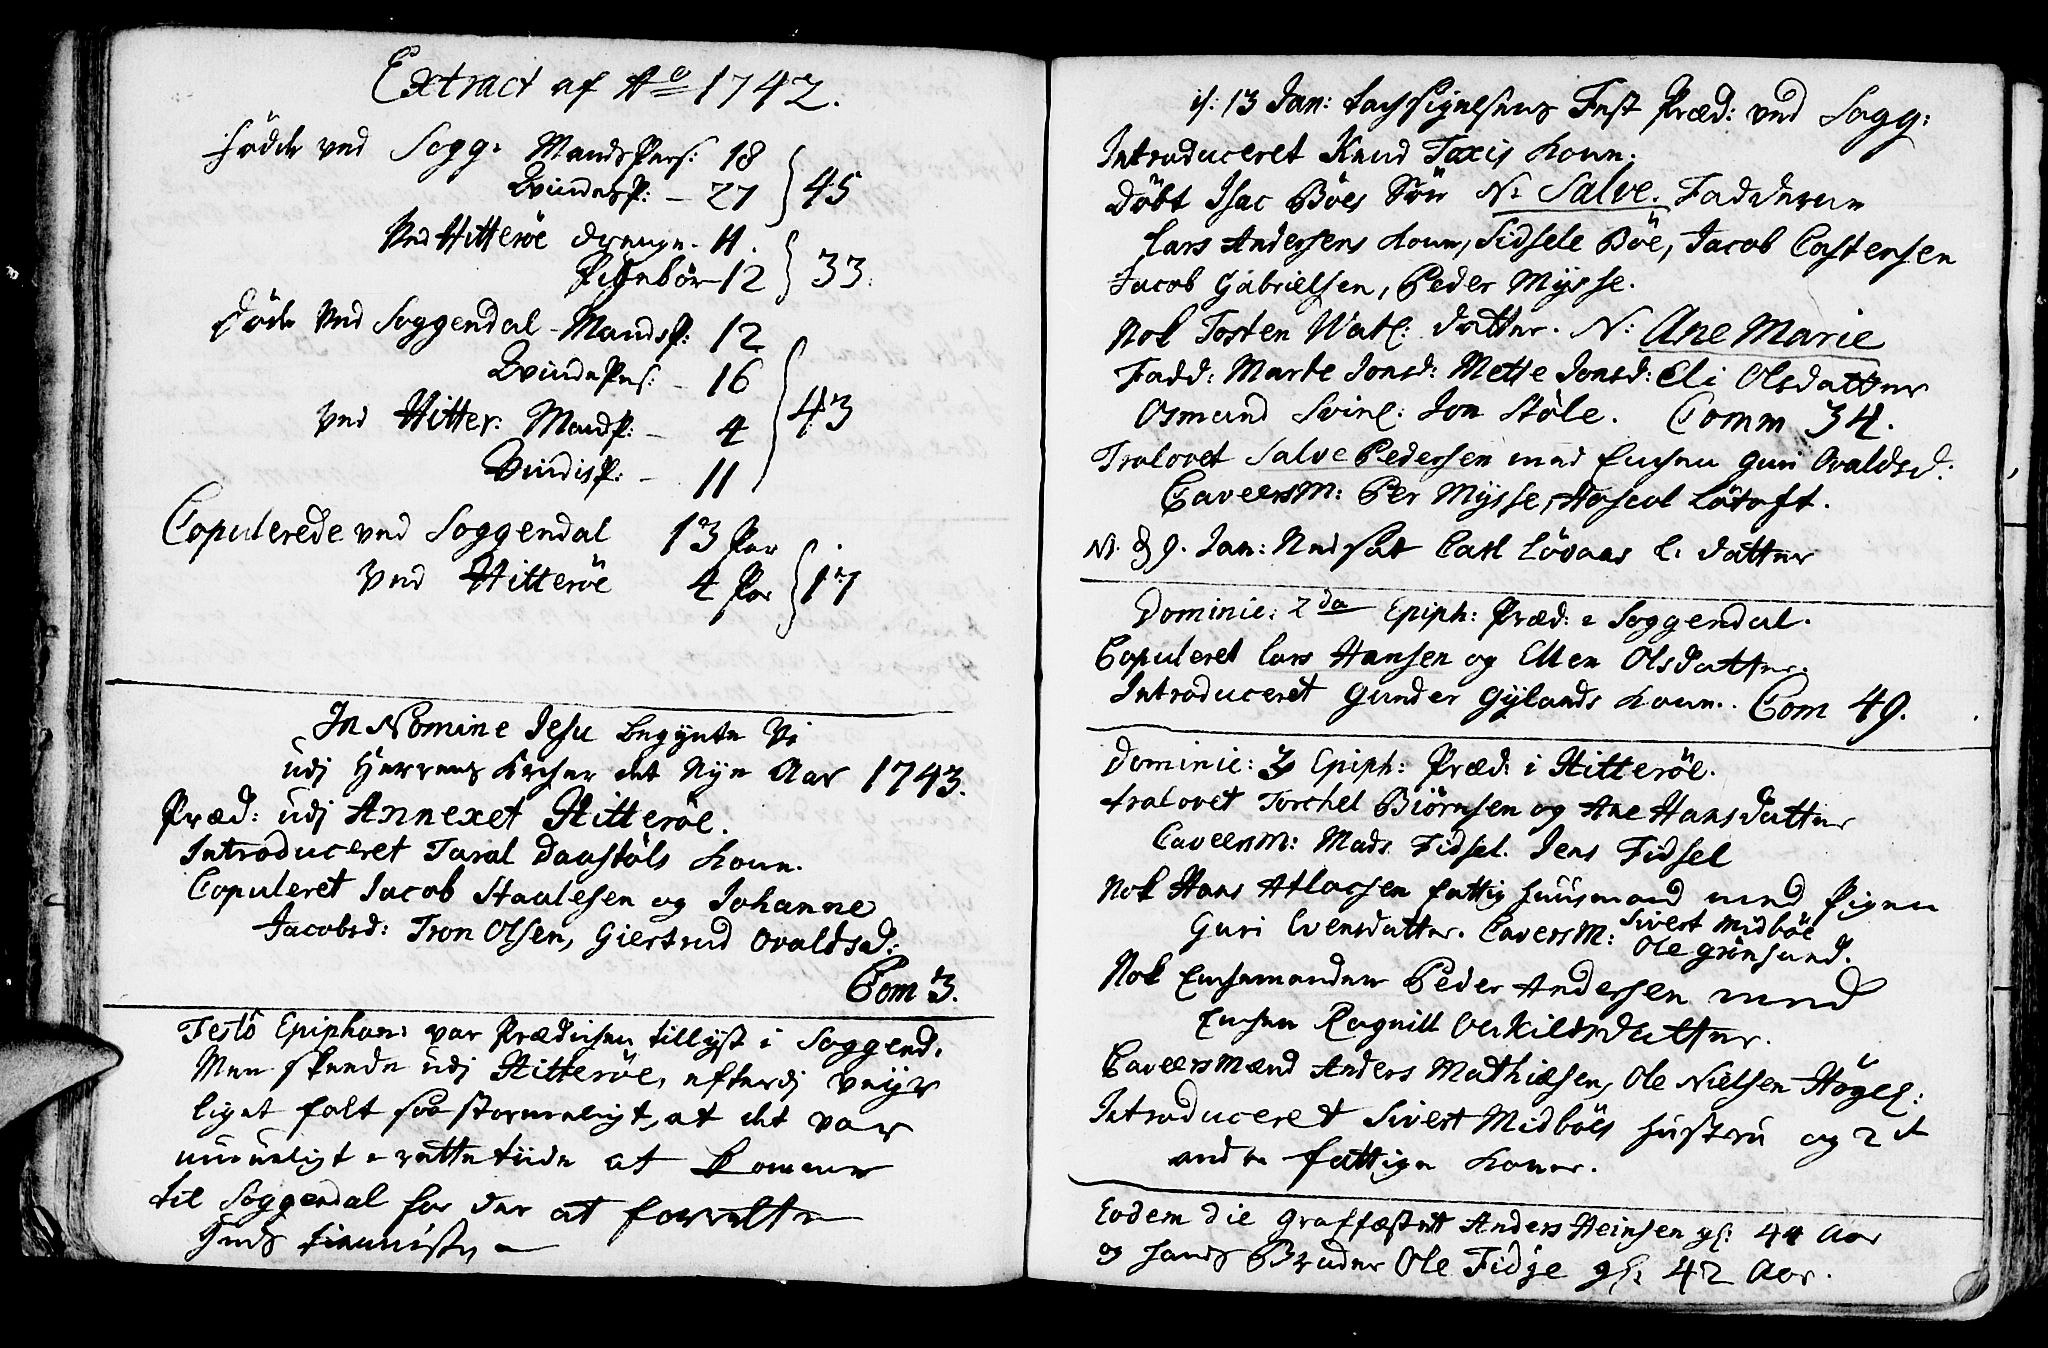 Extract af Aº 1742.
Födde ved Sogg: MandsPers: 18
Qvindesp: – 27 } 45
Ved Hitteröe drenge – 11.
Pigebör – 12 } 33.
Döde ved Soggendal – Mandsp: 12
QvindePers: – 16
ved Hitter: Mandp: – 4 } 43
Qvindisp: – 11
Copulerede ved Soggendal 13 Par
ved Hitteröe 4 Par } 17
In Nomine Jesu begynte Vi
udj Herrens Kircher det Nye Aar 1743.
Præd: udj Annexet Hitteröe.
Introduceret Taral Daastöls Kone.
Copuleret Jacob Staalesen og Johanne
Jacobsd: Tron Olsen, Giertrud Ovaldsd:
Com 3.
Festo Epiphan: var Prædichen tillyst i Soggend.
Men skeede udj Hitteröe, efterdj veyr
liget falt saa stormeligt, at det var
umueligt i rette tiide at komme
til Soggendal for der at forrette
Guds tienniste,
d: 13 Jan: Fest Præd: ved Sogg:
Introduceret Knud Taxis Kone.
Döbt Isac Böes Sön N: Salve. Fadderne
Lars Andersens Kone, Sidsele Böe, Jacob Castensen
Jacob Gabrielsen, Peder Mysse.
Nok Tosten Watl: datter. N: Ane Marie
Fadd: Marte Jonsd: Mette Jonsd: Eli Olsdatter
Osmund Svinl: Jon Stöle. Comm 34.
Trolovet Salve Pedersen med Enchen Guri Ovaldsd:
CaveersM: Per Mysse, Lötoft.
N. d 9. Jan: Nedsat Carl Lövaas l: datter
Dominic: 2da Epiph: Præd: i Soggendal.
Copuleret Lars Hansen og Ellen Olsdatter.
Introduceret Gunder Gylands Kone. Com 49.
Dominic: 3 Epiph: Præd: i Hitteröe.
trolovet Torchel Biörnsen og Ane Hansdatter
CaveersM: Mads Fidsel. Jens Fidsel
Nok Hans Atlacsen fattig huusmand med Pigen
Guri Evensdatter. CaversM: Sivert Midböe
Ole Grönsund.
Nok Enchemanden Peder Andersen med
Enchen Ragnill Aschildsdatter.
Caveersmænd Anders Mathiæsen, Ole Nielsen Högel:
Introduceret Sivert Midböes hustru og 2de
andre fattige Koner.
Eodem die Graffæstet Anders Heinsen gl: 44 Aar
og hands Bruder Ole Fidje gl: 42 Aar.